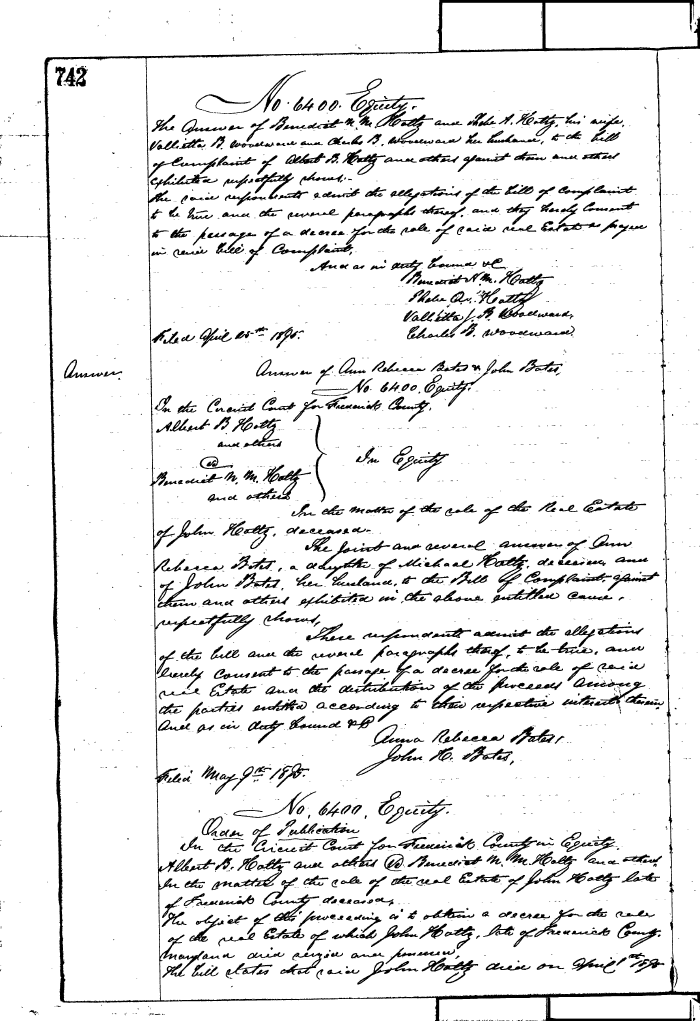 742
No. 6400. Equity.
The Answer of Benedict N. M. Holtz and Phebe A. Holtz, his wife,
Valletta B. Woodward and Charles B. Woodward her husband, to the bill
of Complaint of Albert B. Holtz and others against them and others
exhibited respectfully shows.-
The said respondents admit the allegations of the bill of Complaint
to be true and the several paragraphs thereof, and they hereby Consent
to the passage of a decree for the sale of said real Estate as prayed
in said bill of Complaint.
And as in duty bound &C
Benedict N. M. Holtz
Phebe A. Holtz
Valletta J. B. Woodward,
Charles B. Woodward
Filed April 25th 1895.
Answer.
Answer of Ann Rebecca Bates & John Bates,
No. 6400. Equity.
In the Circuit Court for Frederick County,
Albert B. Holtz
and others
vs
In Equity
Benedict N. M. Holtz
and others
In the matter of the sale of the Real Estate
of John Holtz, deceased.
The Joint and several answer of Ann
Rebecca Bates, a daughter of Michael Holtz, deceased, and
of John Bates, her husband, to the Bill of Complaint against
them and others exhibited in the above entitled cause,
respectfully shows,
These respondents admit the allegations
of the bill and the several paragraphs thereof, to be true, and
hereby consent to the passage of a decree for the sale of said
real Estate and the distribution of the proceeds among
the parties entitled according to their respective interests therein
And as in duty bound &C
Anna Rebecca Bates,
John H. Bates,
Filed May 9th 1895.
No. 6400. Equity.
Order of Publication
In the Circuit Court for Frederick County in Equity.
Albert B. Holtz and others vs Benedict N. M. Holtz and others
In the matter of the sale of the real Estate of John Holtz late
of Frederick County deceased,
The object of this proceeding is to obtain a decree for the sale
of the real Estate of which John Holtz, late of Frederick County,
Maryland died seized and possessed,
The bill states that said John Holtz died on April 1st 1895